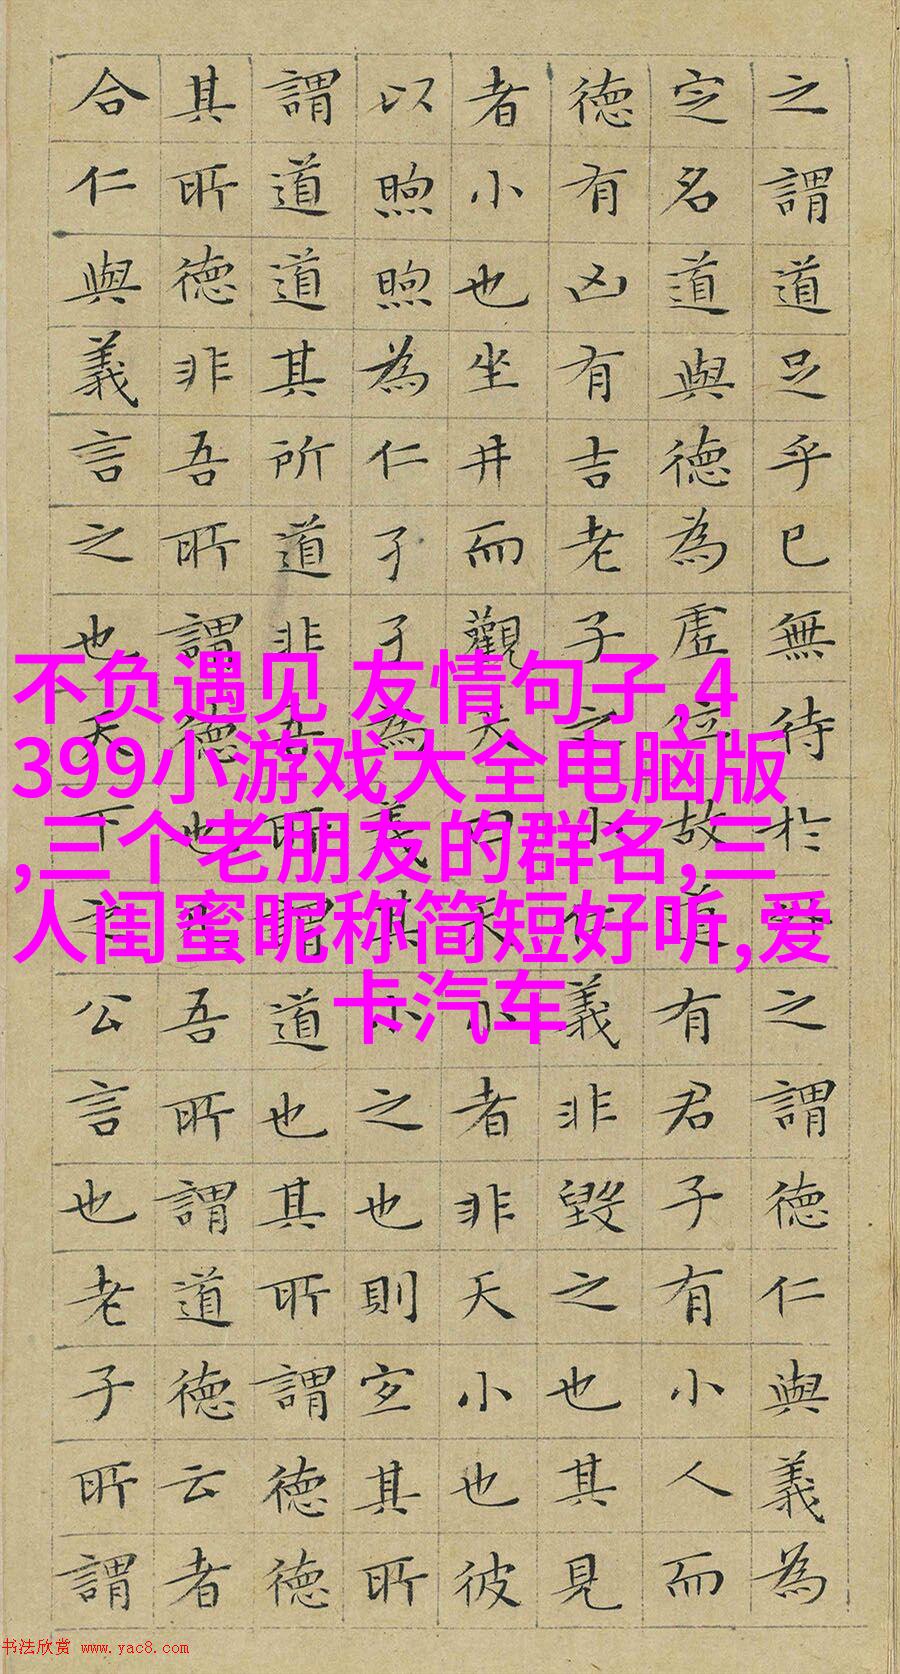 之謂道足乎已無待於之謂德仁與義為
定名道與德為虛位故道有君子有小人而
德有凶有吉老子之小仁義非毀之也其見
者小也坐井而觀天曰天小者非天小也彼
以煦煦為仁孑孑為義其小之也則宜其所
謂道道其所道非吾所謂道也其所謂德德
其所德非吾所謂德也吾所謂道德云者
合仁與義言之也天下公言也老子所謂
不负遇见 友情句子,4
399小游戏大全电脑版
,三个老朋友的群名,三
人闺蜜昵称简短好听,爱
卡汽车
书法欣赏 www.yac8.com